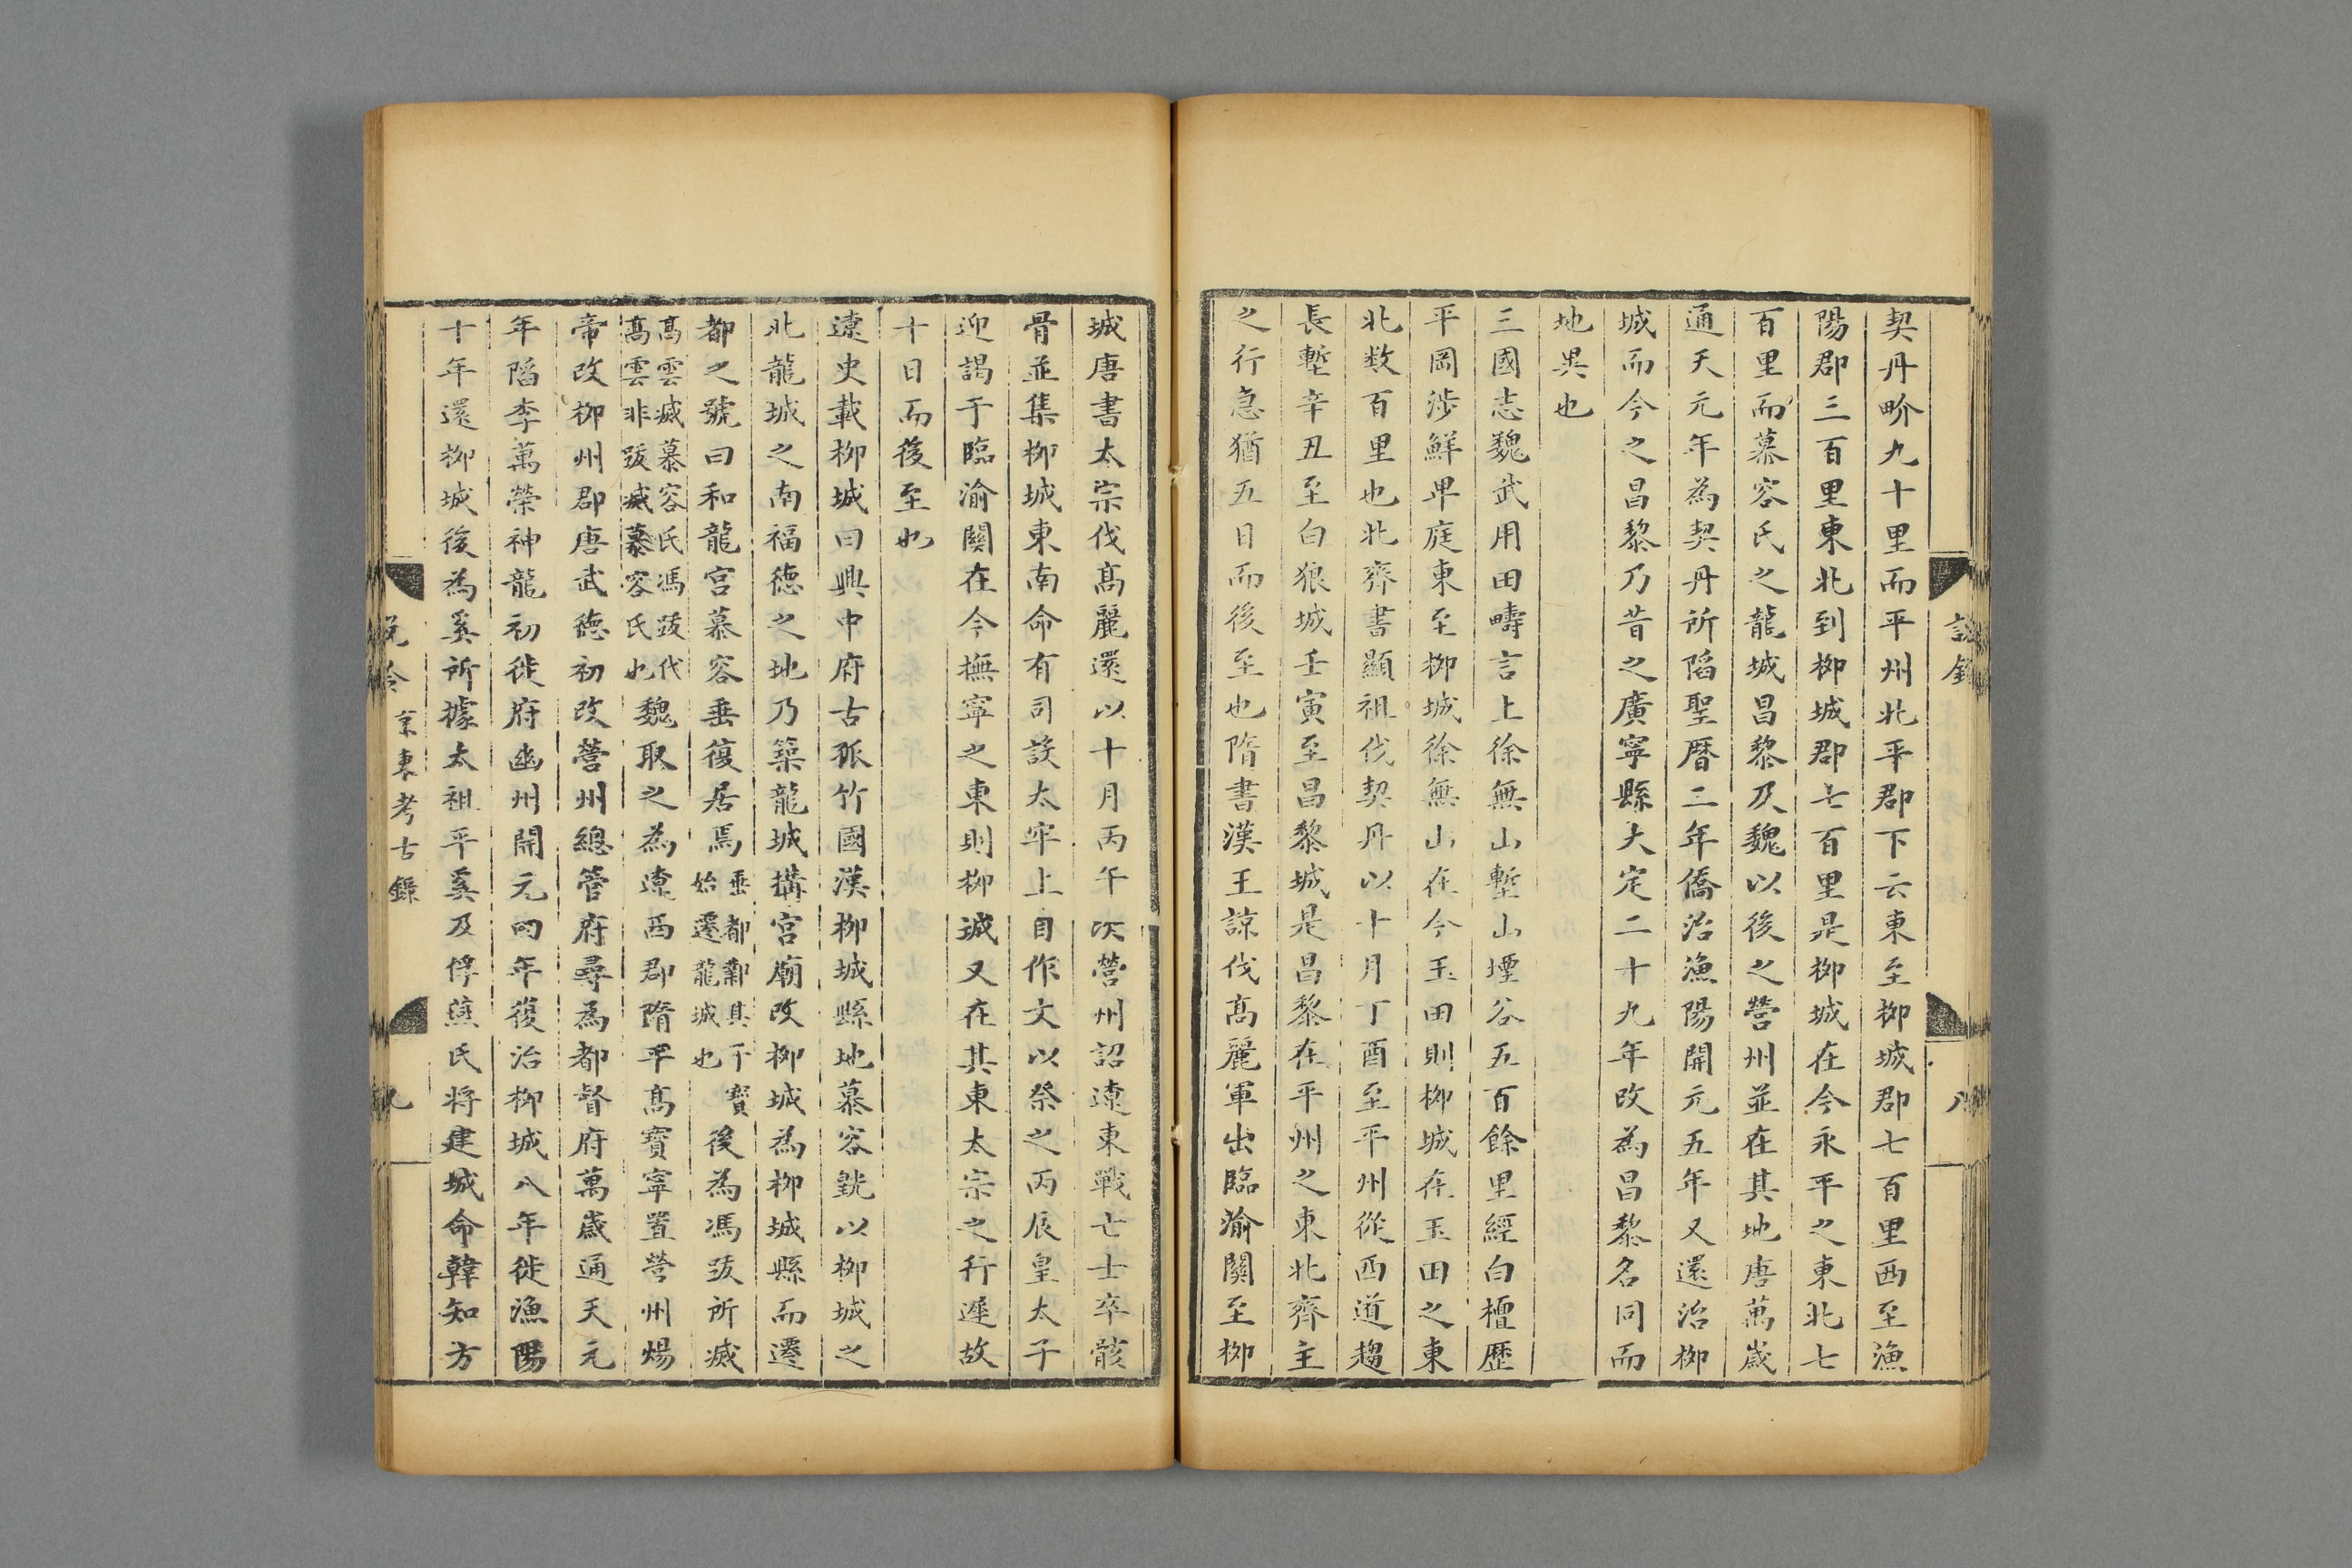 契丹畍九十里而平州北平郡下云東至柳城郡七百里西至漁
陽郡三百里東北到柳城郡七百里是柳城在今永平之東北七
百里而慕容氏之龍城昌黎及魏以後之營州並在其地唐萬歲
通天元年為契丹所䧟聖曆二年僑治漁陽開元五年又還治柳
城而今之昌黎乃昔之廣寧縣大定二十九年改為昌黎名同而
地異也
三國志魏武用田疇言上徐無山塹山堙谷五百餘里經白檀歷
平岡涉鮮卑庭東至柳城徐無山在今玉田則柳城在玉田之東
北数百里也北齊書顯祖伐契丹以十月丁酉至平州從西道趨
長塹辛丑至白狼城壬寅至昌黎城是昌黎在平州之東北齊主
之行急猶五日而後至也隋書漢王諒伐高麗軍出臨渝關至柳
城唐書太宗伐高麗還以十月丙午次營州詔遼東戰亡士卒骸
骨並集柳城東南命有司設太牢上自作文以祭之丙辰皇太子
迎謁于臨渝關在今撫寧之東則柳城又在其東太宗之行遲故
十日而後至也
遼史載柳城曰興中府古孤竹國漢柳城縣地慕容皝以柳城之
北龍城之南福德之地乃築龍城搆宮廟改柳城為柳城縣而遷
都之號曰和龍宮慕容垂復居焉垂都鄴其子寶始遷龍城也後為馮跋所滅
高雲滅慕容氏馮跋代高雲非跋滅慕容氏也魏取之為遼西郡隋平高寶寧置營州煬
帝改柳州郡唐武德初改營州總管府尋為都督府萬歲通天元
年䧟李萬榮神龍初徙府幽州開元四年復治柳城八年徙漁陽
十年還柳城後為奚所據太祖平奚及俘燕氏将建城命韓知方
京東考古錄
九